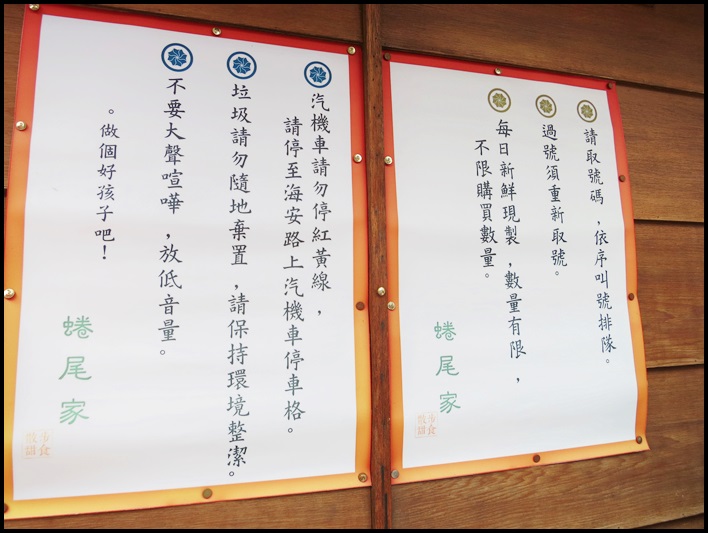 請取號碼，依序叫號排隊。
過號須重新取號。
每日新鮮現製，數量有限，
不限購買數量。
蜷尾家
散步甜食
汽機車請勿停紅黃線，
請停至海安路上汽機車停車格。
垃圾請勿隨地棄置，請保持環境整潔。
不要大聲喧嘩，放低音量。
。做個好孩子吧！
蜷尾家